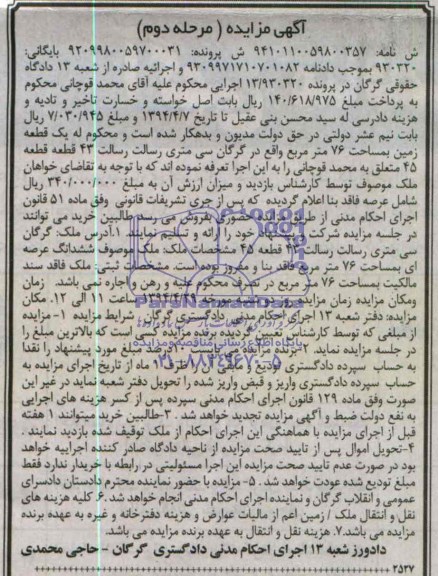 آگهی مزایده ( مرحله دوم)
ش نامه: ۹۴۱۰۱۱۰۰۵۹۸۰۰۳۵۷ ش پرونده: ۹۲۰۹۹۸۰۰۵۹۷۰۰۰۳۱ بایگانی:
۹۳۰۳۲۰ بموجب دادنامه ۹۳۰۹۹۷۱۷۱۰۷۰۱۰۸۲ و اجرائیه صادره از شعبه ۱۳ دادگاه
حقوقی گرگان در پرونده ۱۳/۹۳۰۳۲۰ اجرایی محکوم علیه آقای محمد قوچانی محکوم
به پرداخت مبلغ ۱۴۰/۶۱۸/۹۷۵ ریال بابت اصل خواسته و خسارت تاخیر و تادیه و
هزینه دادرسی له سید محسن بنی عقیل تا تاریخ ۱۳۹۴/۴/۷ و مبلغ ۷/۰۳۰/۹۴۵ ریال
بابت نیم عشر دولتی در حق دولت مدیون و بدهکار شده است و محکوم له یک قطعه
زمین بمساحت ۷۶ متر مربع واقع در گرگان سی متری رسالت رسالت ۴۳ قطعه قطعه
۴۵ متعلق به محمد قوچانی را به این اجرا تعرفه نموده اند که با توجه به تقاضای خواهان
ملک موصوف توسط کارشناس بازدید و میزان ارزش آن به مبلغ ۳۴۰/۰۰۰/۰۰۰ ریال
شامل عرصه فاقد بنا اعلام گردیده که پس از جری تشریفات قانونی وفق ماده ۵۱ قانون
اجرای احکام مدنی از طریق مزایده حضوری بفروش می رسد طالبین خرید می توانند
در جلسه مزایده شرکت و پیشنهاد خود را ارائه و تسلیم نمایند. ۱.آدرس ملک: گرگان
سی متری رسالت رسالت ۴۳ قطعه ۴۵ مشخصات ملک: ملک موصوف ششدانگ عرصه
ای بمساحت ۷۶ متر مربع فاقد بنا و مفروز بوده است. مشخصات ثبتی: ملک فاقد سند
مالکیت بمساحت ۷۶ متر مربع در تصرف محکوم علیه و رهن و اجاره نمی باشد. زمان
ومکان مزایده زمان مزایده: روز شنبه مورخه ساعت ۱۱ الی ۱۲. مکان
مزایده: دفتر شعبه ۱۳ اجرای احکام مدنی دادگستری گرگان . شرایط مزایده ۱- مزایده
از مبلغی که توسط کارشناس تعیین گردیده برنده مزایده کسی است که بالاترین مبلغ را
در جلسه مزایده نماید. ۲-برنده مزایده می بایست ۱۰درصد مبلغ مورد پیشنهاد را نقدا
به حساب سپرده دادگستری تودیع و ظرف ۱ ماه از تاریخ اجرای مزایده به
حساب سپرده دادگستری واریز و قبض واریز شده را تحویل دفتر شعبه نماید در غیر این
صورت وفق ماده ۱۲۹ قانون اجرای احکام مدنی سپرده پس از کسر هزینه های اجرایی
به نفع دولت ضبط و آگهی مزایده تجدید خواهد شد. ۳-طالبین خرید میتوانند ۱ هفته
قبل از اجرای مزایده با هماهنگی این اجرای احکام از ملک توقیف شده بازدید نمایند.
۴-تحویل اموال پس از تایید صحت مزایده از ناحیه دادگاه صادر کننده اجراییه خواهد
بود در صورت عدم تایید صحت مزایده این اجرا مسئولیتی در رابطه با خریدار ندارد فقط
مبلغ تودیع شده عودت خواهد شد. ۵- مزایده با حضور نماینده محترم دادستان دادسرای
عمومی و انقلاب گرگان و نماینده اجرای احکام مدنی انجام خواهد شد.۶. کلیه هزینه های
نقل و انتقال ملک / زمین اعم از مالیات عوارض و هزینه دفترخانه و غیره به عهده برنده
مزایده می باشد.۷. هزینه نقل و انتقال به عهده برنده مزایده می باشد.
دادورز شعبه ۱۳ اجرای احکام مدنی دادگستری گرگان - حاجی محمدی
۲۵۲۷
ParsNamadData
پایگاه اطلاع رسانی مناقصه و مزایده
۰۲۱-۸۸۳۴۹۶۷۰-۵